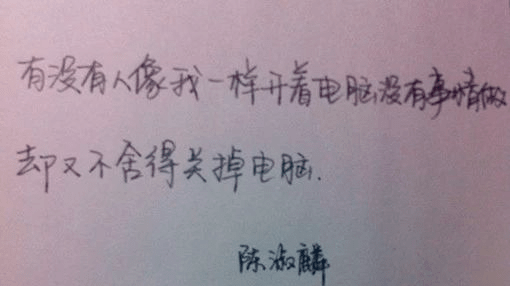 有没有人像我一样开着电脑没有事情做
却又不舍得关掉电脑.
陈淑麟